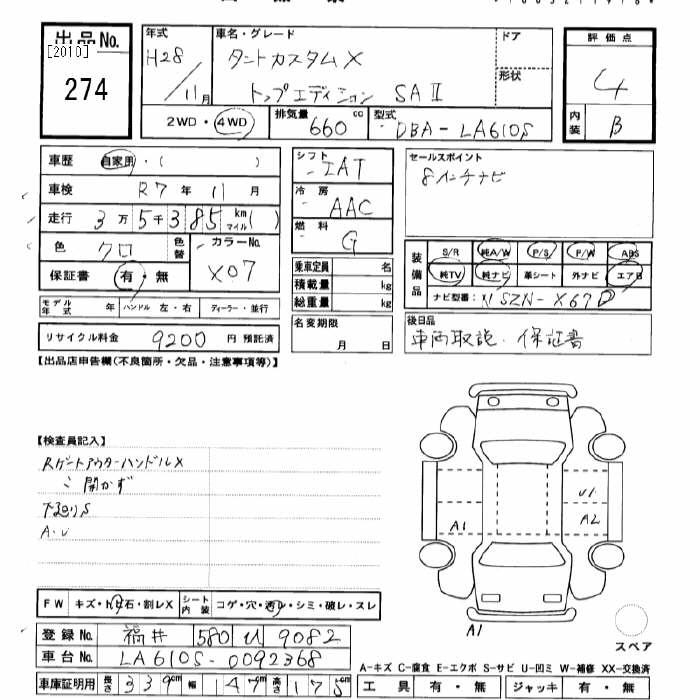 出品No.
[2010]
274
年式
H28/11月
車名・グレード
タントカスタムX
トップエディション SAⅡ
ドア
形状
評価点
4
内装
B
2WD・4WD
排気量
660 cc
型式
DBA-LA610S
車歴 自家用・( )
車検 R7年 11月
走行 3万5千385km マイル( )
色 クロ
色替
カラーNo. X07
保証書 有・無
モデル年式 年 ハンドル 左・右 ディーラー・並行
リサイクル料金 9200円 預託済
シフト
IAT
冷房
AAC
燃料
G
乗車定員 名
積載量 kg
総重量 kg
名変期限
月 日
セールスポイント
8インチナビ
装備品
S/R 純A/W P/S P/W ABS
純TV 純ナビ 革シート 外ナビ エアB
ナビ型番: NSZN-X67D
後日品
車両取説・保証書
【出品店申告欄(不良箇所・欠品・注意事項等)】
【検査員記入】
Rゲートアウターハンドル X
開かず
下回りS
A・U
FW キズ・ト石・割レX
シート内装 コゲ・穴・汚レ・シミ・破レ・スレ
登録No. 福井 580 い 9082
車台No. LA610S-0092368
車庫証明用 長さ 339cm 幅 147cm 高さ 175cm
U1
A2
A1
A1
スペア
A-キズ C-腐食 E-エクボ S-サビ U-凹ミ W-補修 XX-交換済
工具 有・無 ジャッキ 有・無